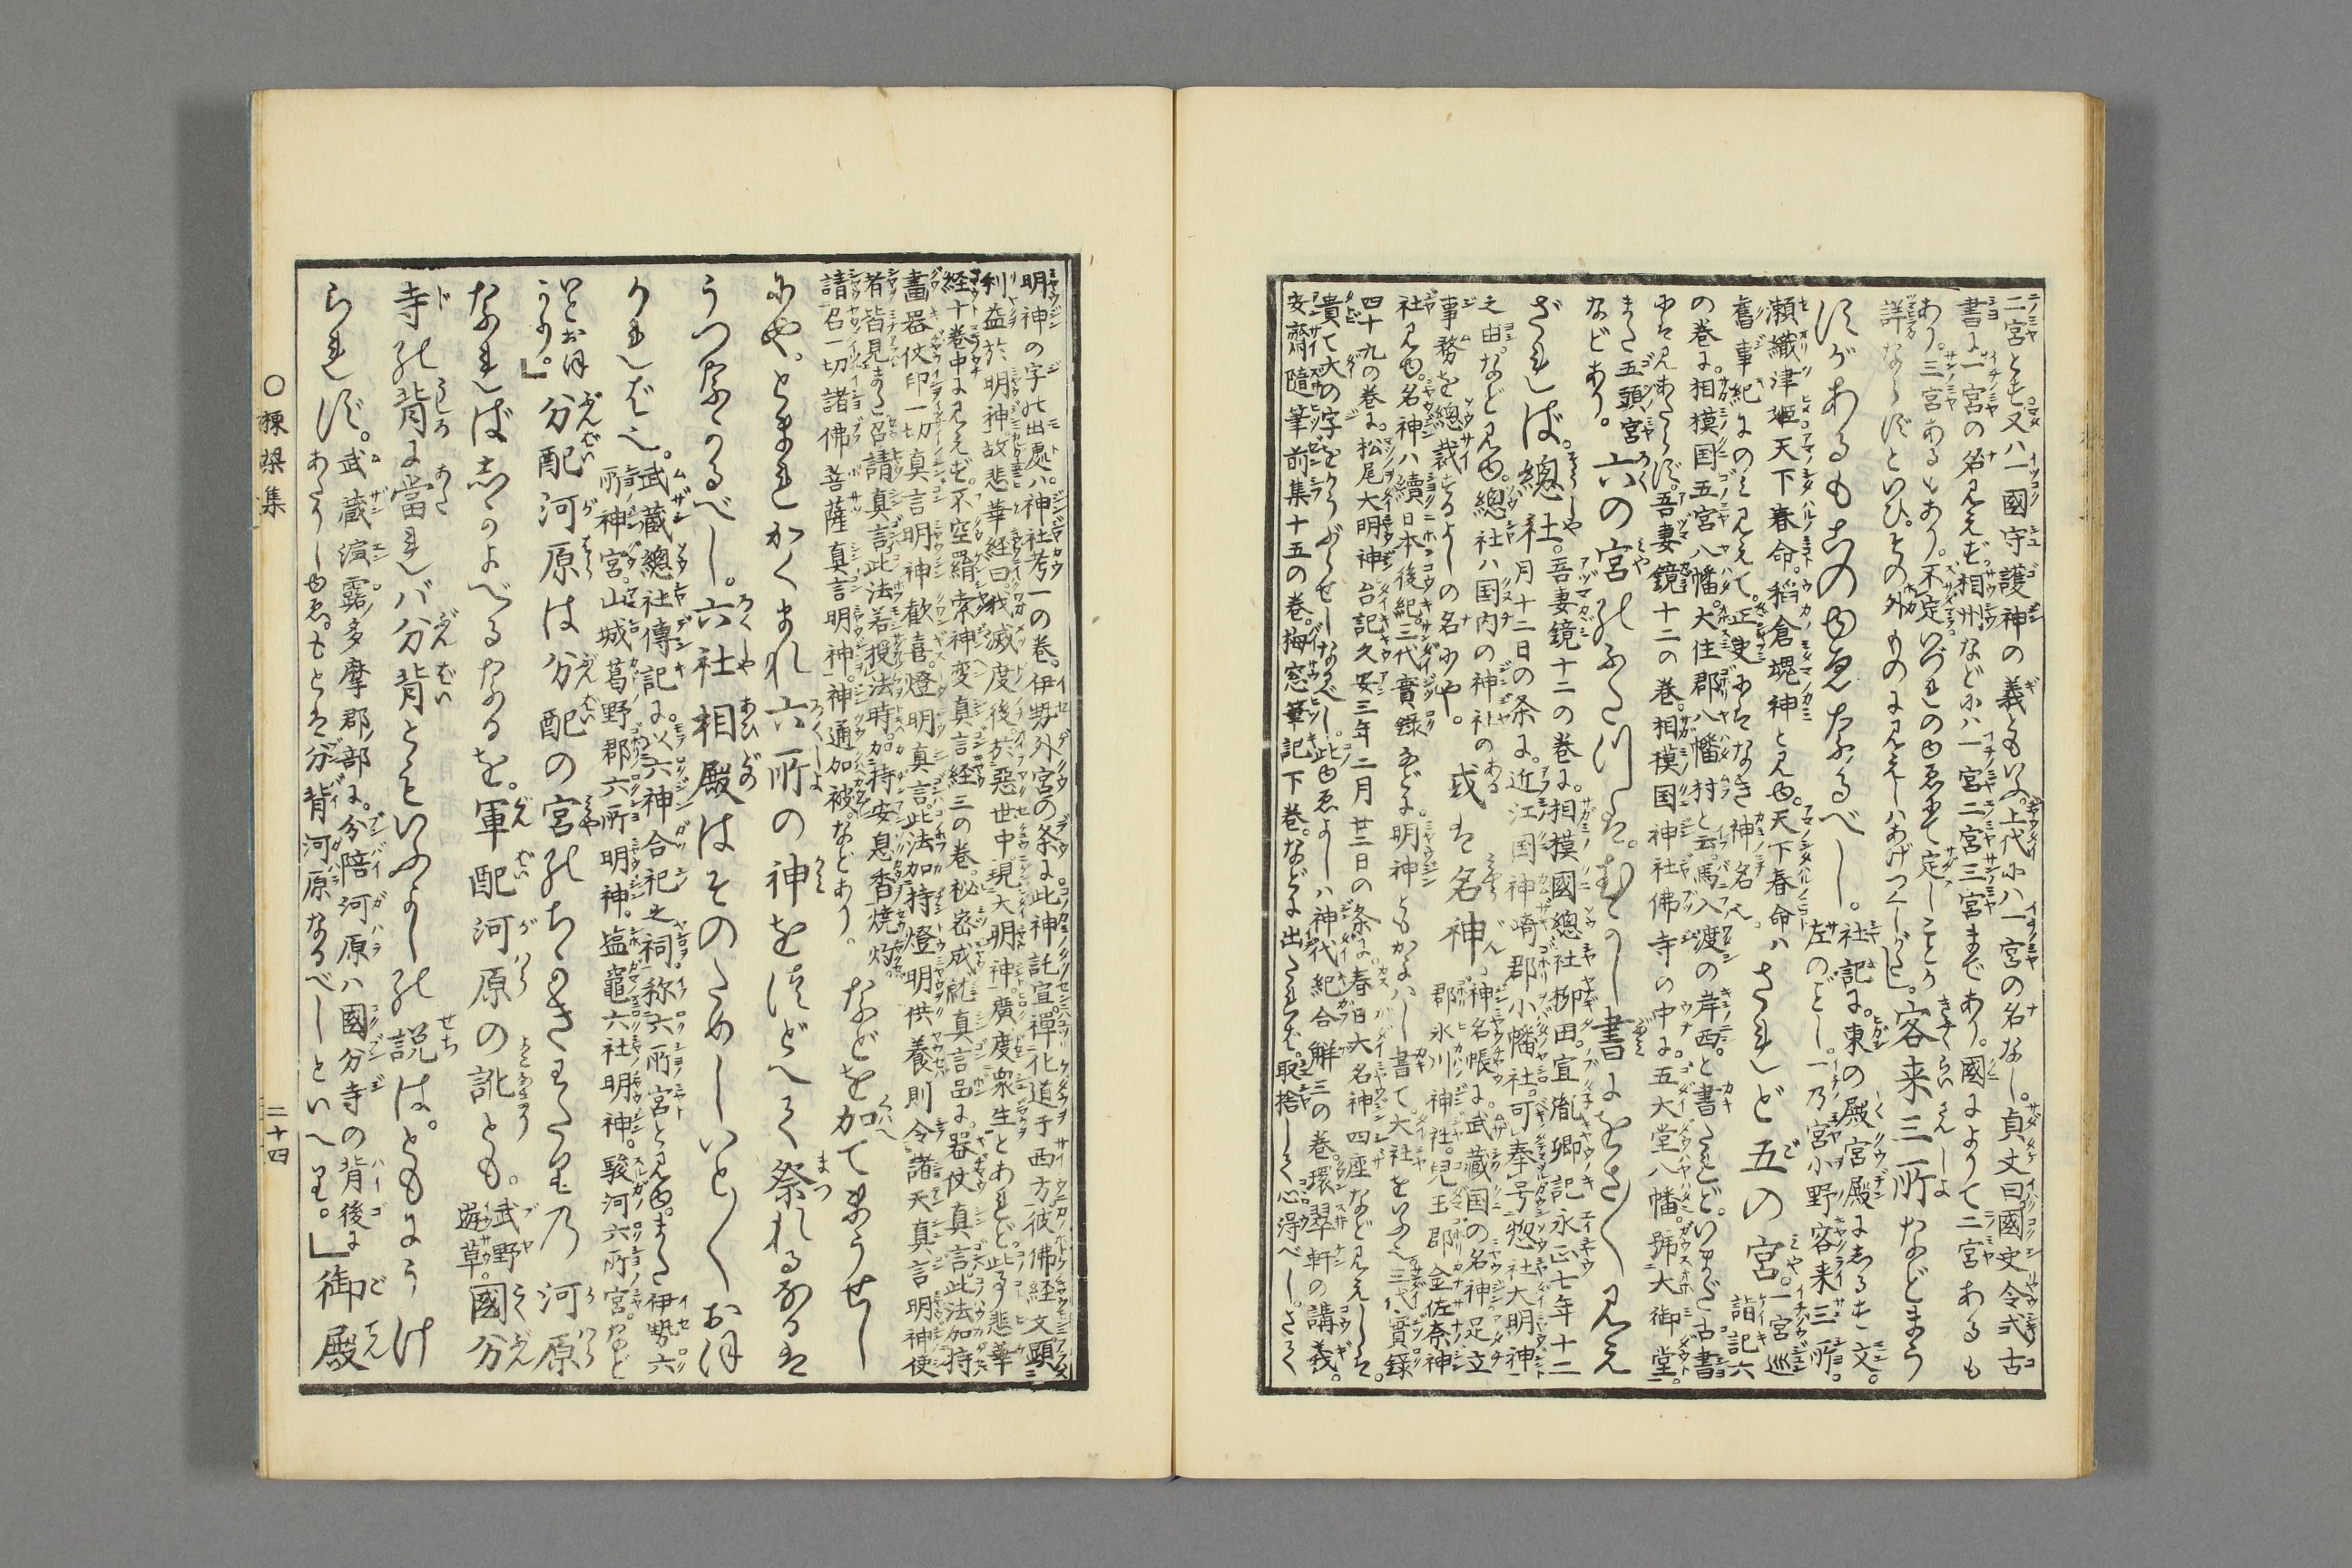 二宮とも又ハ一國守護神の義ともいふ。上代にハ一宮の名なし。貞丈曰國史令式古
書に一宮の名見えず相州などにハ一宮二宮三宮まであり。國によりて二宮あるも
あり。三宮あるもあり。不定いづれのゆゑにて定しことか
詳ならずといひ。その外ものに見えしハあげつくしがたし。客来三所などまう
すがあるもこのゆゑなるべし。社記に。東の殿宮殿にしるす文。
左のごとし。一乃宮小野客来三所。
瀬織津姫天下春命。稻倉魂神と見ゆ。天下春命ハ
舊事紀にのみ見えて。正史にはなき神名也。されど五の宮。一宮巡詣記六
の巻に。相摸国五宮八幡。大住郡八幡村と云。馬入渡の岸西。と書たれど。いまだ古書
には見あたらず。吾妻鏡十二の巻。相摸国神社佛寺の中に。五大堂八幡。号大御堂。
また五頭宮などあり。六の宮のふたつは。むかし書にをさ〳〵見え
ざれば總社。吾妻鏡十二の巻に。相摸國總社柳田。宜胤卿記永正七年十二
月十二日の条に。近江国神崎郡小幡社。可奉号惣社大明神
之由。など見ゆ。總社ハ国内の神社の
事務を總裁するよしの名にや。或は名神。神名帳に。武蔵国の名神足立
郡氷川神社。児玉郡金佐奈神
社見ゆ。名神ハ續日本後紀。三代實録などに。明神ともかよハし書て。大社をいふ也。三代實録
四十九の巻に。松尾大明神台記久安三年二月廿二日の条に。春日大名神四座など見えしは。
貴て大の字をかうぶらせしなるべし。此ゆゑよしハ神代紀合解三の巻。環翠軒の講義。
安齋随筆前集十五の巻。梅窓筆記下巻。などに出たれば。取捨して心得べし。さて
明神の字の出處ハ神社考一の巻。伊勢外宮の条に此神託宣。禪化道于西方。彼佛経文顕
利益於明神故悲華経曰我滅度後。於惡世中。現大明神。廣度衆生とあれど。此事悲華
経十巻中に見えず。不空羂索神変真言経三の巻。秘密成就真言品に。器仗真言此法加持
畫器仗印一切真言明神歓喜。燈明真言。此法加持燈明供養則令諸天真言明神使
者皆見。また召請真言此法若授法時。加持安息香焼焫。
請召一切諸佛菩薩真言明神。神通加被。などあり。などを加てまうせし
にや。とまれかくまれ六所の神をすべて祭れるなるは
うつなかるべし。六社相殿はそのためしいと〳〵おほ
かれば也。武蔵總社傳記に。以六神合祀之祠称六所宮と見ゆ。また伊勢六
所神宮。山城葛野郡六所明神。塩竈六社明神。駿河六所宮。など
いとおほかり。」分配河原は分配の宮のちかきわたり乃河原
なればしかよべるなるを。軍配河原の訛とも。武野遊草。國分
寺の背に當れバ分背とぞいふよしの説は。ともにうけ
られず。武蔵演露ノ多摩郡ノ部に。分陪河原ハ國分寺の背後に
あたりしゆゑ。もとは分背河原なるべしといへり。」御殿
○楝槼集
二十四